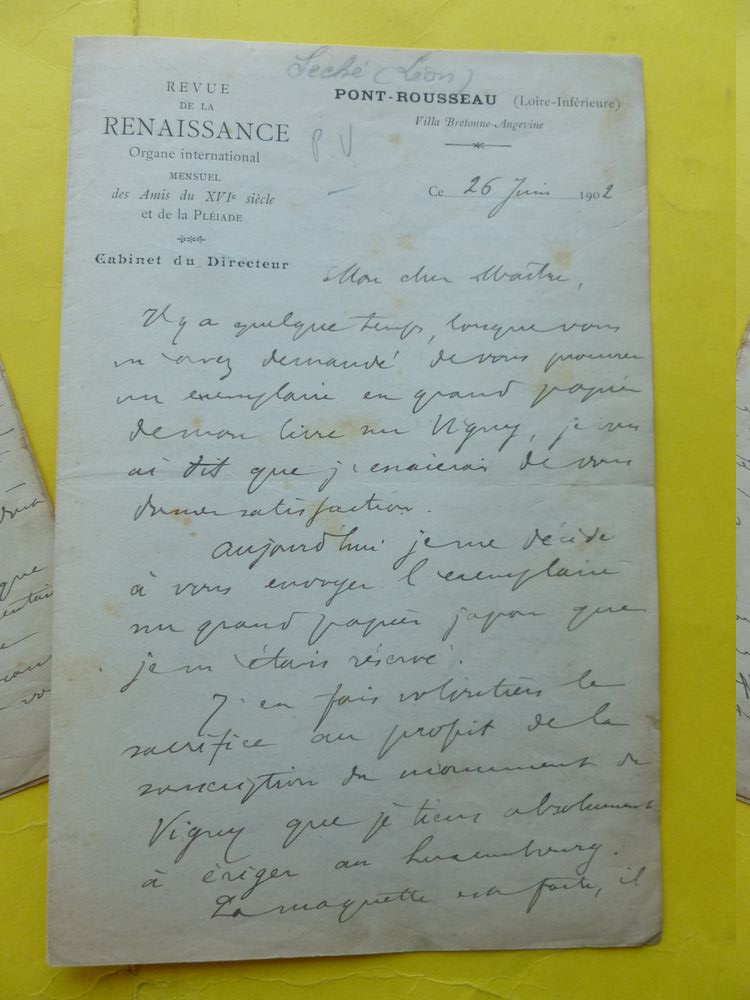 Seché (Léon)
REVUE
DE LA
RENAISSANCE
Organe international
MENSUEL
des Amis du XVIe siècle
et de la PLÉIADE
Cabinet du Directeur
PONT-ROUSSEAU (Loire-Inférieure)
Villa Bretonne-Angevine
P. V
Ce 26 Juin 1902
Mon cher Maître,
Il y a quelque temps, lorsque vous
m'avez demandé de vous procurer
un exemplaire en grand papier
de mon livre sur Vigny, je vous
ai dit que j'essaierais de vous
donner satisfaction.
Aujourd'hui je me décide
à vous envoyer l'exemplaire
sur grand papier japon que
je m'étais réservé.
J'en fais volontiers le
sacrifice au profit de la
souscription du monument de
Vigny que je tiens absolument
à ériger au Luxembourg.
La maquette est faite, il